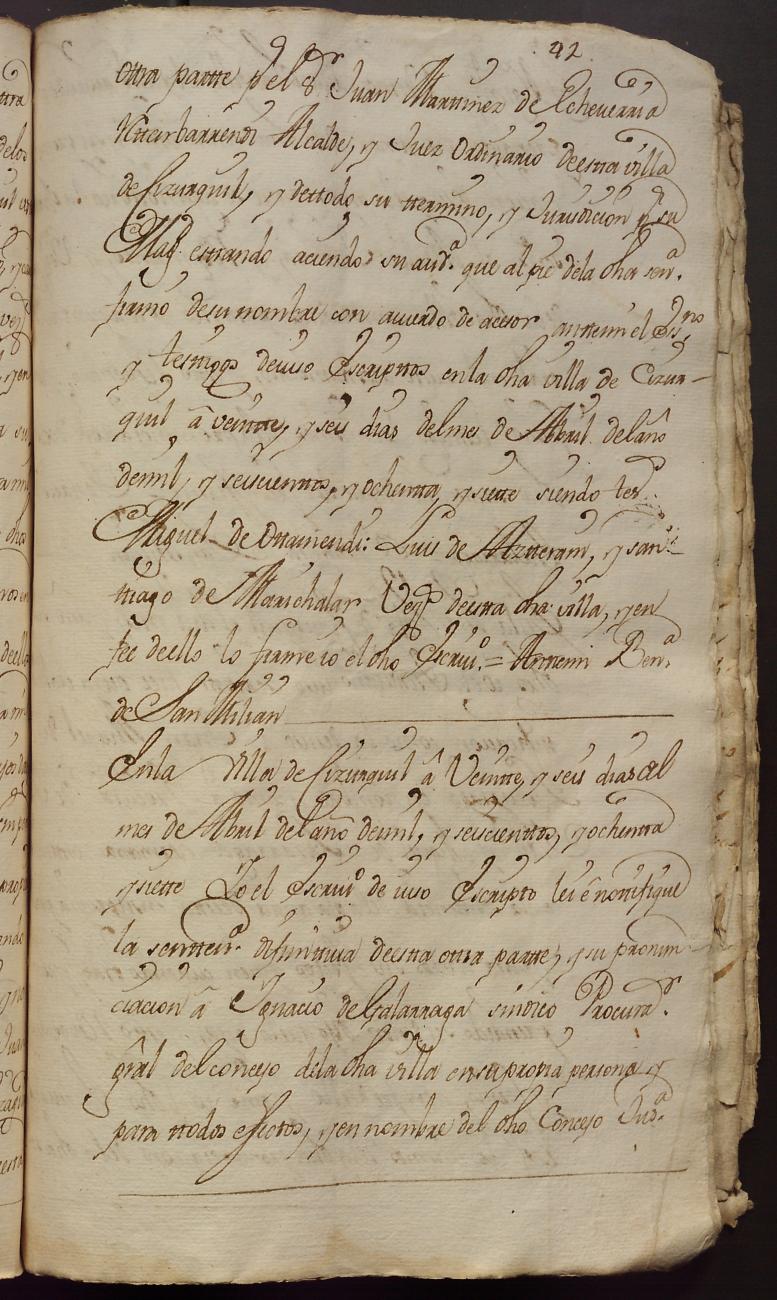 42
otra partte p.r el s.r Juan Martinez de Echeverria
Yttcarbarrendi Alcalde, y Juez Ordinario de estta villa
de Cizurquil, y de ttodo su ttermino, y Jurisdicion p.r su
Mag.d esttando aciendo su aud.a que al pie dela dha sen.a
firmo de su nombre con acuerdo de acesor anttemi el Ess.no
y testtigos de iuso Escripttos en la dha villa de Cizur-
quil â veintte, y seis dias del mes de Abril del año
demil, y seiscienttos, y ochentta, y siette siendo tes.
Miguel de Ottamendi: Luis de Aztteran, y san-
ttiago de Marichalar Vez.s de estta dha villa, y en
fee de ello lo firme io el dho Escriu.o = Anttemi Ber.a
de San Milian
En la Villa de Cizurquil â Veintte, y seis dias del
mes de Abril del año demil, y seiscienttos, y ochentta
y siette Yo el Escriu.o de iuso Escripto lei ê nottifique
la senttenz.a difinittiua de estta ottra partte, y su pronun-
ciacion â Ygnacio de Galarraga sindico Procura.r
gral del concejo dela dha villa en su propia persona y
para ttodos efecttos, y en nombre del dho Concejo Jus.a